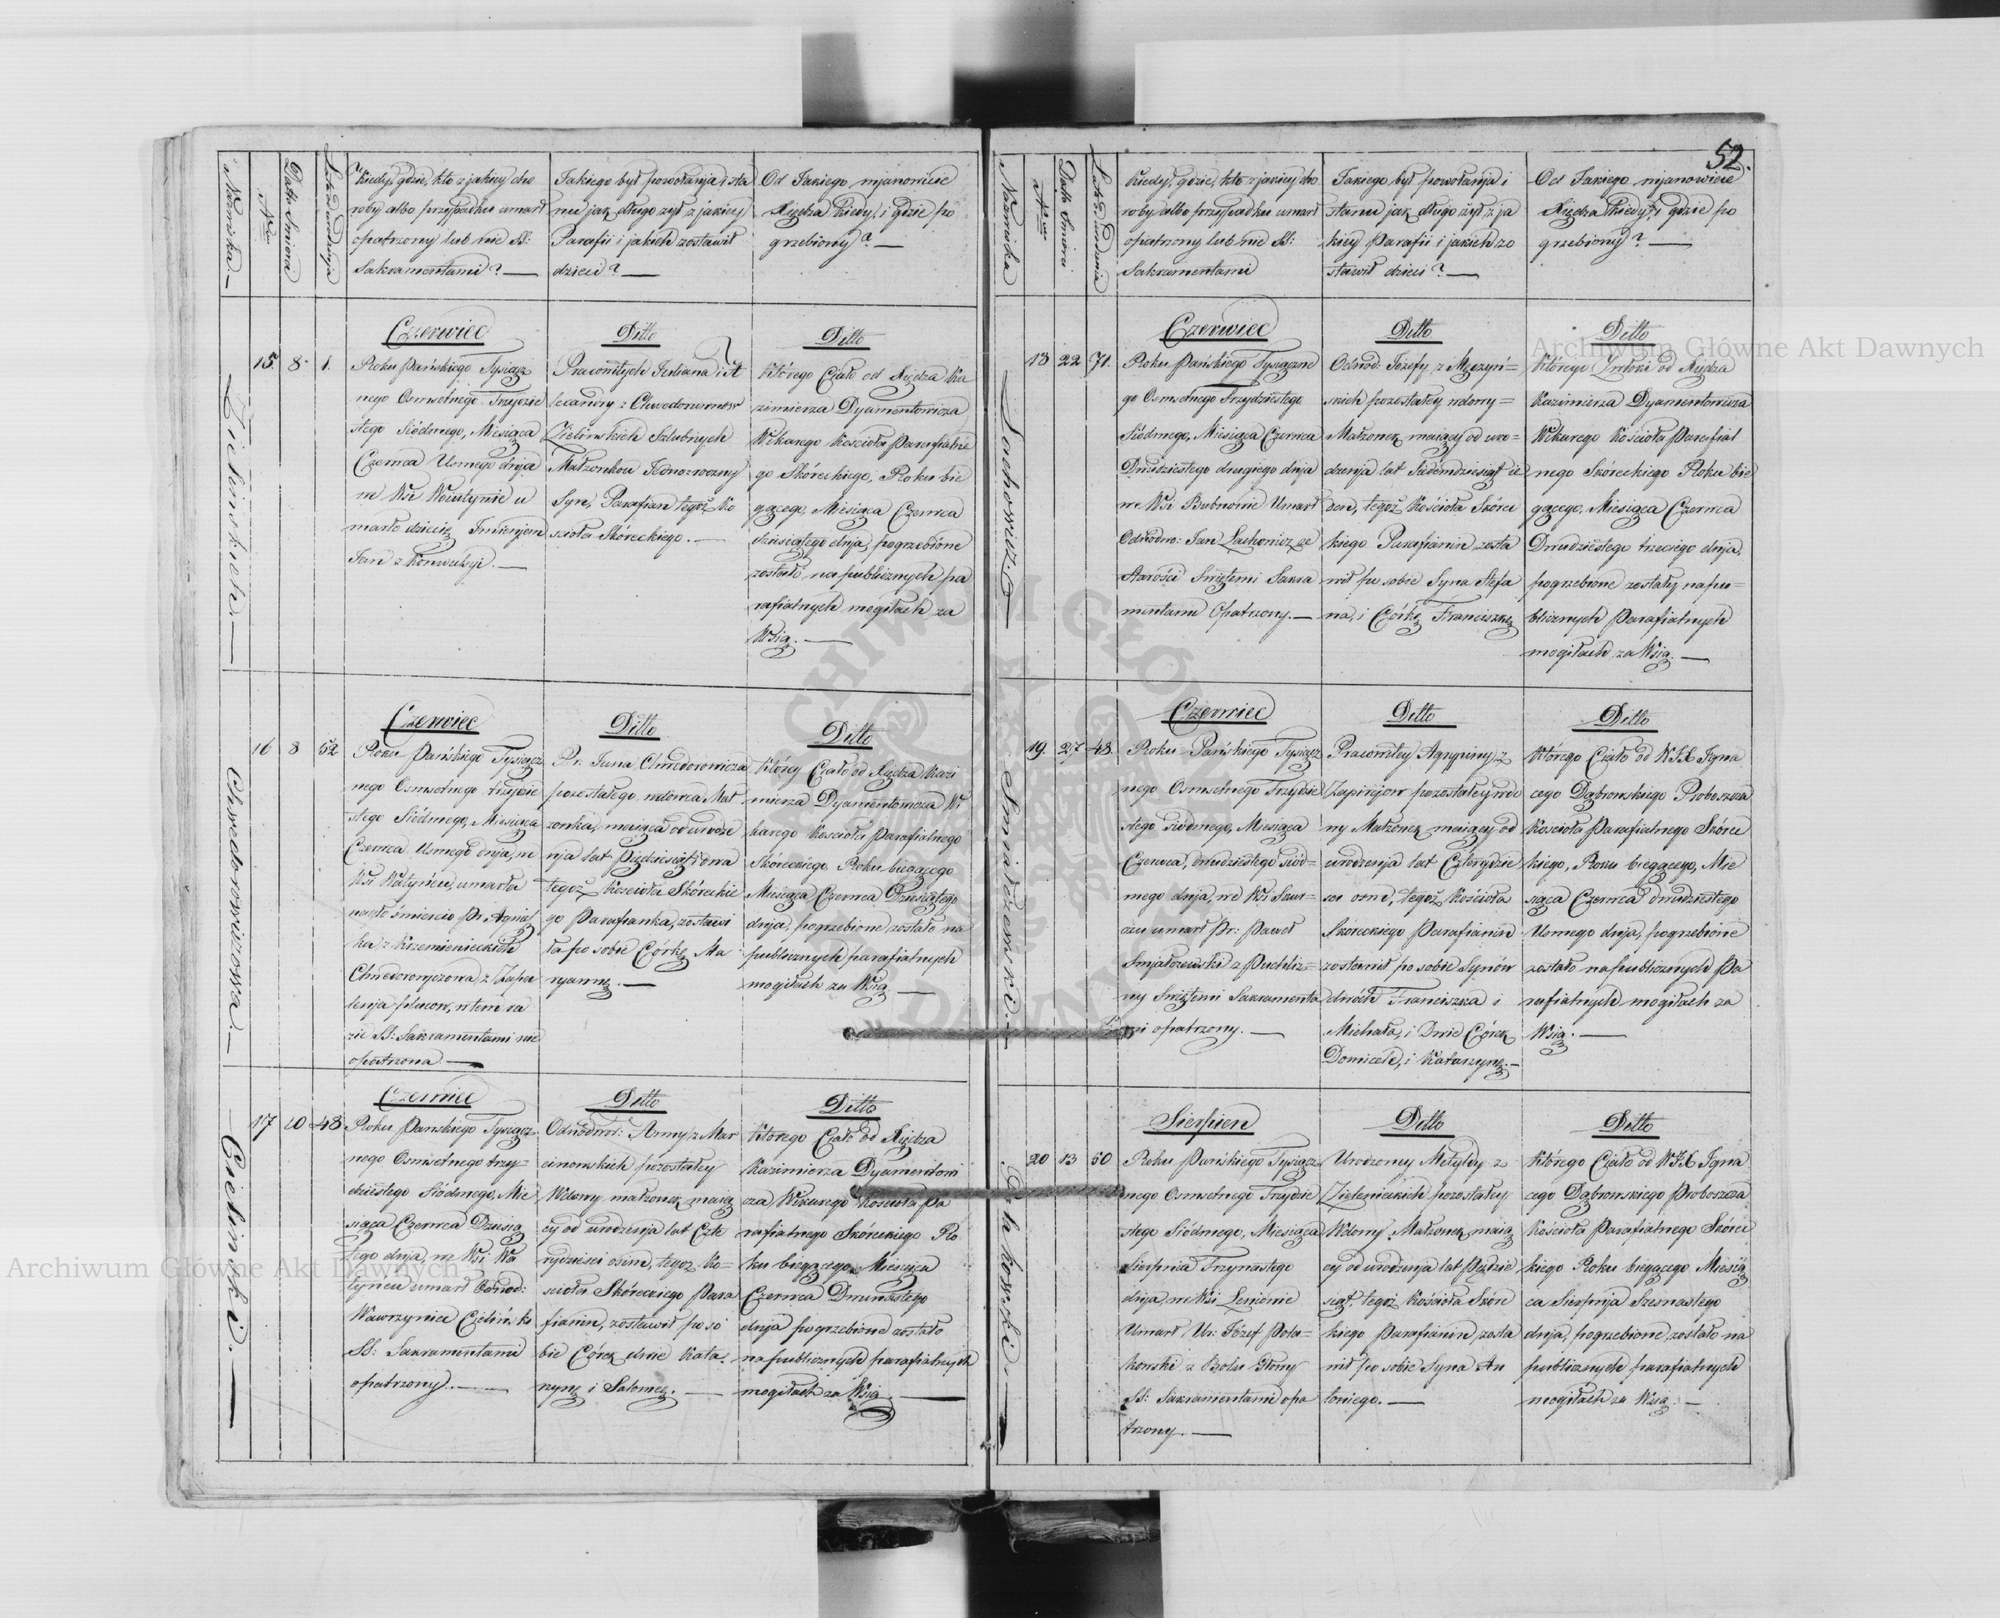 52.
Nazwiska
Nrm
Data Śmierci
Kiedy, gdzie, kto z jakiey cho
roby albo przypadku umarł
opatrzony lub nie SS:
Sakramentami? —
Jakiego był powołania i sta
nu jak długo żył z jakiey
Parafii i jakich zostawił
dzieci? —
Od Jakiego mjanowicie
Xiędza Kiedy, i gdzie po
grzebiony? —
Zielinskich —
15. 8. 1.
Czerwiec
Roku Pańskiego Tysiącz
nego Osmsetnego Trzydzie
stego Siódmego, Miesiąca
Czerwca Usmego dnja
we Wsi
marło dziecię Imieniem
Jan z Konwulsyi. —
Ditto
Pracowitych Juliana i A
lexandry z Chwedorowiczow
Zielinskich Szlubnych
Małżonków Jednoroczny
Syn, Parafian tegoż Ko
scioła Skóreckiego. —
Ditto
Którego Ciało od Xiędza Ka
zimierza Dyamentowicza
Wikarego Kościoła Parafialne
go Skóreckiego, Roku bie
gącego, Miesiąca Czerwca
dziesiątego dnja, pogrzebione
zostało na publicznych pa
rafialnych mogiłach za
Wsią. —
Chwedorowiczowa. —
16 8 52
Czerwiec
Roku Pańskiego Tysiącz
nego Osmsetnego trzydzie
stego Siódmego, Miesiąca
Czerwca Usmego dnja, we
Wsi Wołyńcu, umarła
nagło śmiercio Pr. Agnisz
ka z Krzemienieckich
Chwedorowiczowa, z Zapa
lenja płucow, w tem ra
zie SS: Sakramentami nie
opatrzona —
Ditto
Pr. Jana Chwedorowicza
pozostałego wdowca Mał
żonka, maiąca od urodze
nja lat Pięćdziesiąt dwa
tegoż Kościoła Skóreckie
go Parafianka, zostawi
ła po sobie Córkę Ma
ryannę. —
Ditto
Którey Ciało od Xiędza Kazi
mierza Dyamentowicza Wi
karego Kościoła Parafialnego
Skóreckiego, Roku biegącego
Miesiąca Czerwca Dziesiątego
dnja, pogrzebione zostało na
publicznych parafialnych
mogiłach za Wsią —
Cieliński. —
17 10 48
Czerwiec
Roku Pańskiego Tysiącz
nego Osmsetnego trzy=
dziestego Siódmego, Mie
siąca Czerwca Dziesią
tego dnja, we Wsi Wo
łyńcu umarł Odnod:
Wawrzyniec Cieliński
SS: Sakramentami
opatrzony. —
Ditto
Odnodwor: Anny z Mar
cinowskich pozostałey
Wdowy małżonek maią
cy od urodzenja lat Czte
rydzieści osim, tegoż Ko=
scioła Skóreckiego Para
fianin, zostawił po so
bie Córek dwie Kata
rzynę i Salomeę. —
Ditto
Którego Ciało od Xiędza
Kazimierza Dyamentowi
cza Wikarego Kościoła Pa
rafialnego Skóreckiego Ro
ku biegącego Miesiąca
Czerwca Dwunastego
dnja pogrzebione zostało
na publicznych parafialnych
mogiłach za Wsią. —
Nazwiska
Nrm
Data Śmierci
Kiedy, gdzie, kto z jakiey cho
roby albo przypadku umarł
opatrzony lub nie SS:
Sakramentami
Jakiego był powołania i
stanu jak długo żył z ja
kiey Parafii i jakich zo
stawił dzieci? —
Od Jakiego mjanowicie
Xiędza Kiedy, i gdzie po
grzebiony? —
18 22 71.
Czerwiec
Roku Pańskiego Tysiączne
go Osmsetnego Trzydziestego
Siódmego, Miesiąca Czerwca
Dwódziestego drugiego dnja
we Wsi Bubnowie Umarł
Odnodwo: Jan Lachowicz ze
starości Swiętemi Sakra
mentami Opatrzony. —
Ditto
Odnod: Józefy z Męczyń=
skich pozostałey wdowy=
Małżonek maiący od uro=
dzenja lat Siedemdziesiąt ie
den, tegoż Kościoła Skóre
kiego Parafianin zosta
wił po sobie Syna Stefa
na, i Córkę Franciszkę
Ditto
Którego Zwłoki od Xiędza
Kazimierza Dyamentowicza
Wikarego Kościoła Parafial
nego Skóreckiego Roku bie
gącego, Miesiąca Czerwca
Dwudziestego trzeciego dnja,
pogrzebione zostały na pu=
blicznych Parafialnych
mogiłach za Wsią. —
Smiałkowski. —
19. 27. 48.
Czerwiec
Roku Pańskiego Tysiącz
nego Osmsetnego Trzydzie
stego Siódmego, Miesiąca
Czerwca, dwudziestego siod=
mego dnja, we Wsi
czu umarł Pr: Paweł
z Puchliz=
ny Swiętemi Sakramenta
mi opatrzony. —
Ditto
Pracowitey Agrypiny z
pozostałey wdo
wy Małżonek maiący od
urodzenja lat Czterydzie
ści osm, tegoż Kościoła
Skóreckiego Parafianin
zostawił po sobie Synów
dwóch Franciszka i
Michała, i Dwie Córek
Domicelę, i Katarzynę. —
Ditto
Którego Ciało od WJX Igna
cego Dąbrowskiego Proboszcza
Kościoła Parafialnego Skóre
kiego, Roku biegącego, Mie
siąca Czerwca dwudziestego
Usmego dnja, pogrzebione
zostało na publicznych Pa
rafialnych mogiłach za
Wsią. —
20 13 50
Sierpień
Roku Pańskiego Tysiącz
nego Osmsetnego Trzydzie
stego Siódmego, Miesiąca
Sierpnia Trzynastego
dnja, we Wsi Leniewie
Umarł Ur: Józef Poła=
kowski z Bolu Głowy
SS: Sakramentami opa
trzony. —
Ditto
Urodzoney Matyldy z
Zielenieckich pozostałey
Wdowy Małżonek maią
cy od urodzenja lat Pięćdzie
siąt, tegoż Kościoła Skóre
kiego Parafianin, zosta
wił po sobie Syna An
toniego. —
Ditto
Którego Ciało od WJX Igna
cego Dąbrowskiego Proboszcza
Kościoła Parafialnego Skóre
kiego Roku biegącego Miesią
ca Sierpnja Szesnastego
dnja, pogrzebione zostało na
publicznych parafialnych
mogiłach za Wsią. —
Archiwum Główne Akt Dawnych
Archiwum Główne Akt Dawnych